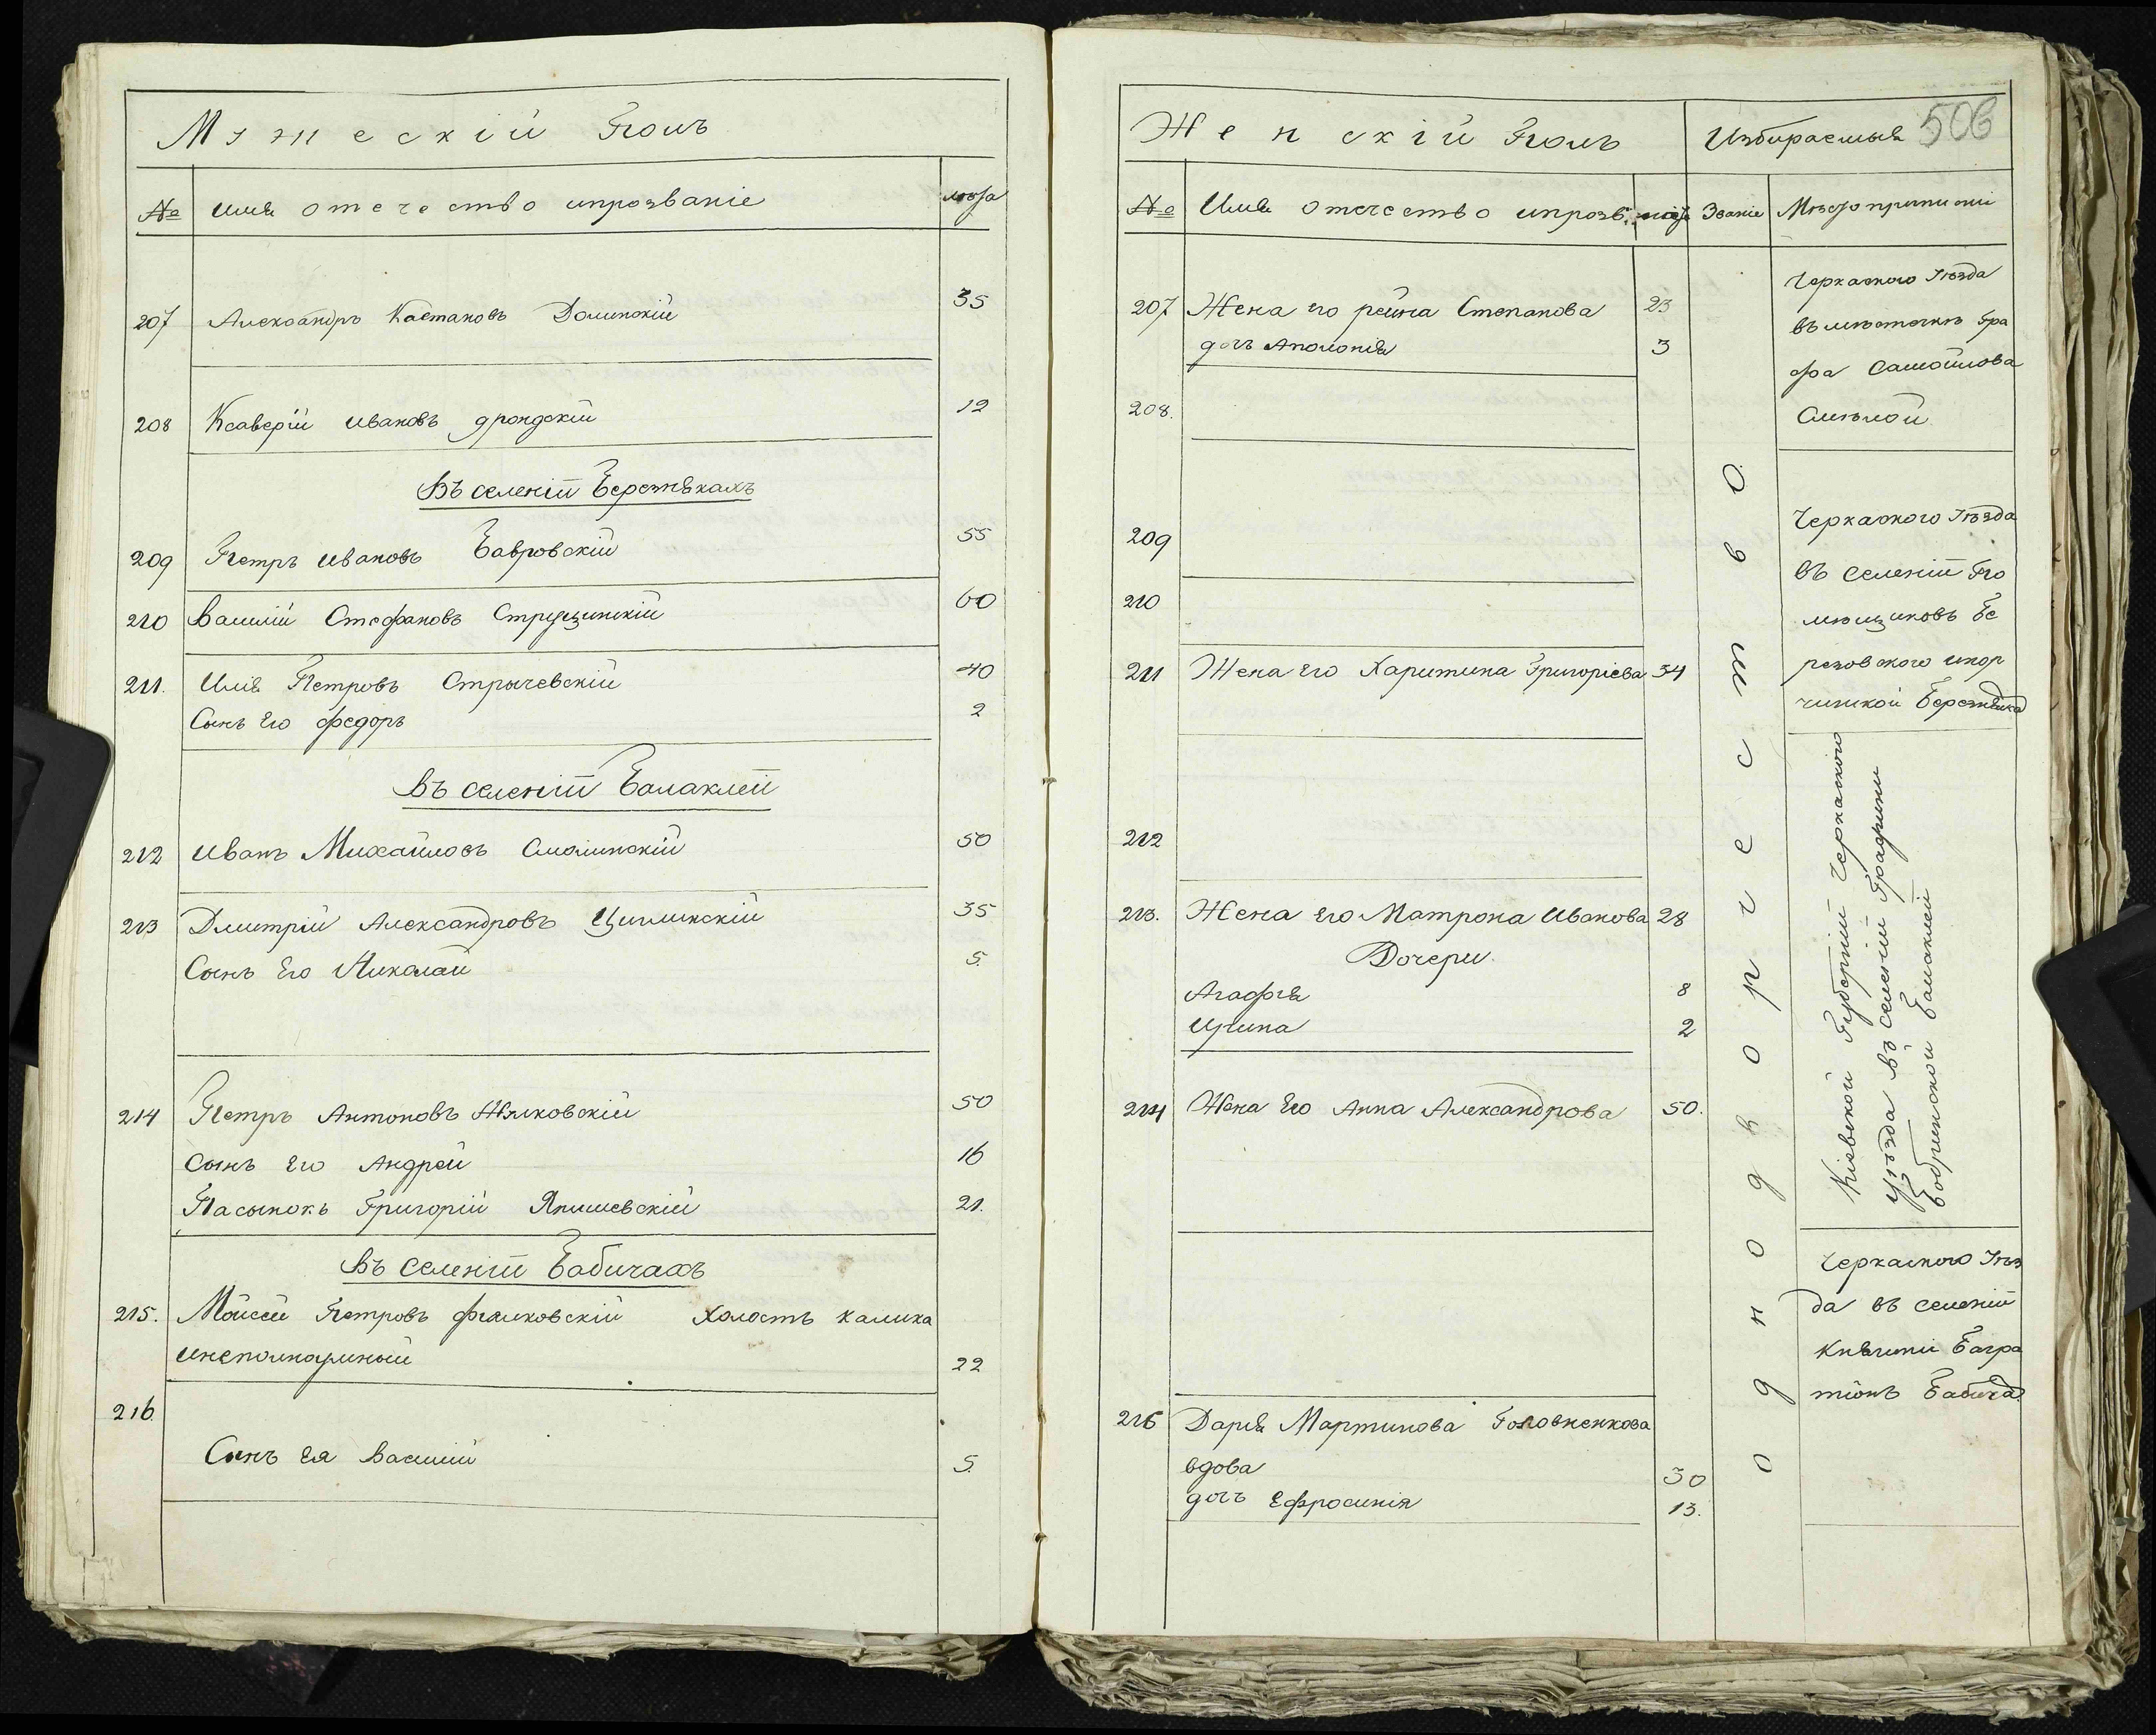 Мужескій Полъ
№ Имя отечество ипрозваніе лѣта
207 Александръ Каетановъ Долинскій 35
208 Ксаверій Ивановъ дрондскій 12
Въ селеніи Березнякахъ
209 Петръ Ивановъ Бавровскій 55
210 Василій Стефановъ Струцинскій 60
211. Илія Петровъ Стрычевскій 40
Сынъ Его федоръ 2
Въ селеніи Балаклеи
212 Иванъ Михайловъ Смолинскій 50
213 Дмитрій Александровъ Цишинскій 35
Сынъ Его Николай 5.
214 Петръ Антоновъ Жилковскій 50
Сынъ Его Андрей 16
Пасынокъ Григорій Янишевскій 21.
Въ Селеніи Бабичахъ
215. Мойсей Петровъ фіалковскій Холостъ калика
инеполноумной 22
216.
Сынъ Ея Василій 5.
Женскій Полъ Избираемыя 506
№ Имя отечество ипрозв: лѣта Званіе Мѣсто приписки
207 Жена его рейна Степанова 23
дочъ Аполонія 3
208.
209
210
211 Жена Его Харитина Григоріева 34
212
213. Жена Его Матрона Иванова 28
Дочери.
Агафія 8
Ирина 2
214 Жена Его Анна Александрова 50.
216 Дарія Мартинова Головненкова
вдова 30
дочъ Ефросинія 13.
однодворчество.
Черкаского Уѣзда
въ мѣстечкѣ Гра
фа Самойлова
Смѣлой
Черкаского Уѣзда
въ Селеніи По
мѣщиковъ Бе
резовского икор
чицкой Березнякахъ
Кіевской Губерніи Черкаского
Уѣзда въ Селеніи Графини
Бобринской Балаклеи
Черкаского Уѣз
да въ селеніи
Княгини Багра
тіонъ Бабичахъ